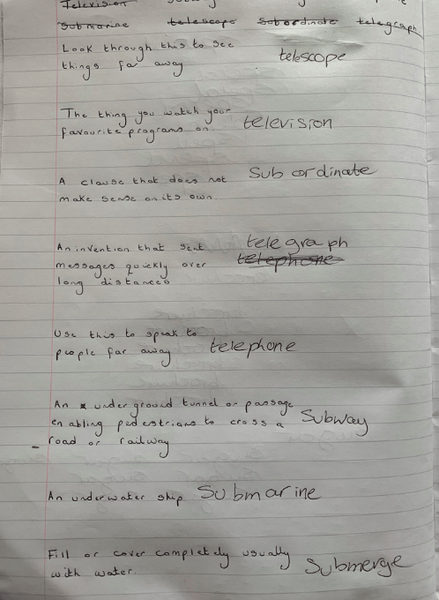 Television
Submarine telescope Subordinate telegraph
Look through this to see
things far away telescope
The thing you watch your
favourite programs on television
A clause that does not Subordinate
make sense on its own
An invention that sent telegraph
messages quickly over telephone
long distances
Use this to speak to
people far away telephone
An underground tunnel or passage
enabling pedestrians to cross a Subway
road or railway
An underwater ship Submarine
Fill or cover completely usually
with water. Submerge